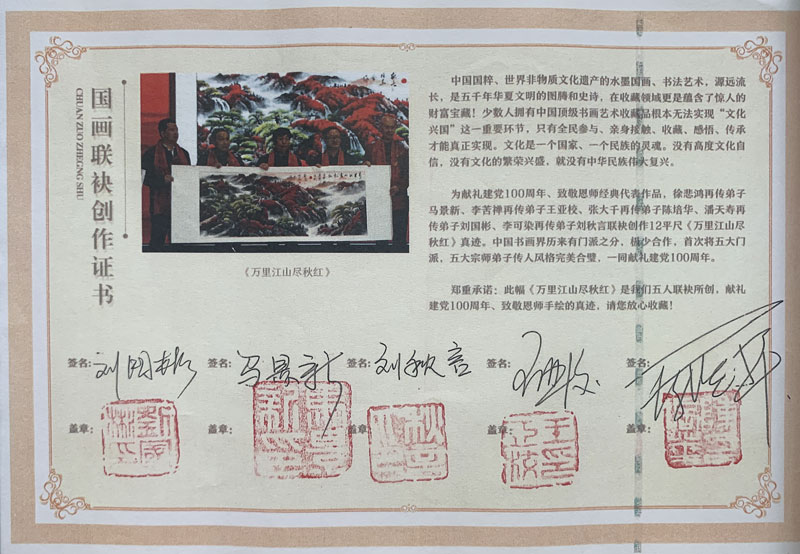 国画联袂创作证书
CHUAN ZUO ZHEGNG SHU
《万里江山尽秋红》
中国国粹、世界非物质文化遗产的水墨国画、书法艺术，源远流
长，是五千年华夏文明的图腾和史诗，在收藏领域更是蕴含了惊人的
财富宝藏！少数人拥有中国顶级书画艺术收藏品根本无法实现“文化
兴国”这一重要环节，只有全民参与、亲身接触、收藏、感悟、传承
才能真正实现。文化是一个国家、一个民族的灵魂。没有高度文化自
信，没有文化的繁荣兴盛，就没有中华民族伟大复兴。
为献礼建党100周年、致敬恩师经典代表作品，徐悲鸿再传弟子
马景新、李苦禅再传弟子王亚校、张大千再传弟子陈培华、潘天寿再
传弟子刘国彬、李可染再传弟子刘秋言联袂创作12平尺《万里江山尽
秋红》真迹。中国书画界历来有门派之分，极少合作，首次将五大门
派，五大宗师弟子传人风格完美合璧，一同献礼建党100周年。
郑重承诺：此幅《万里江山尽秋红》是我们五人联袂所创，献礼
建党100周年、致敬恩师手绘的真迹，请您放心收藏！
签名：刘国彬 签名：马景新 签名：刘秋言 签名： 签名：
盖章： 盖章： 盖章： 盖章： 盖章：